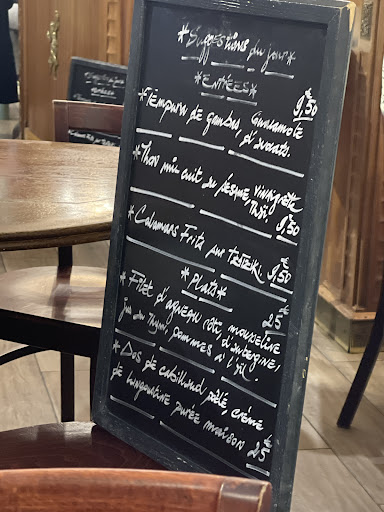 *Suggestions du jour*
*ENTRÉES*
*Tempura de gambas Guacamole
d'avocats. 9,50
*Thon mi cuit au sésame, vinaigrette
Thaï 9,50
*Calamars Frits sur Tzatziki. 9,50
*Plats*
*Filet d'agneau rôti, mousseline 25€
jus au Thym, d'aubergine,
pommes à l'ail.
*Dos de cabillaud poêlé, crème
de langoustine purée maison 25€